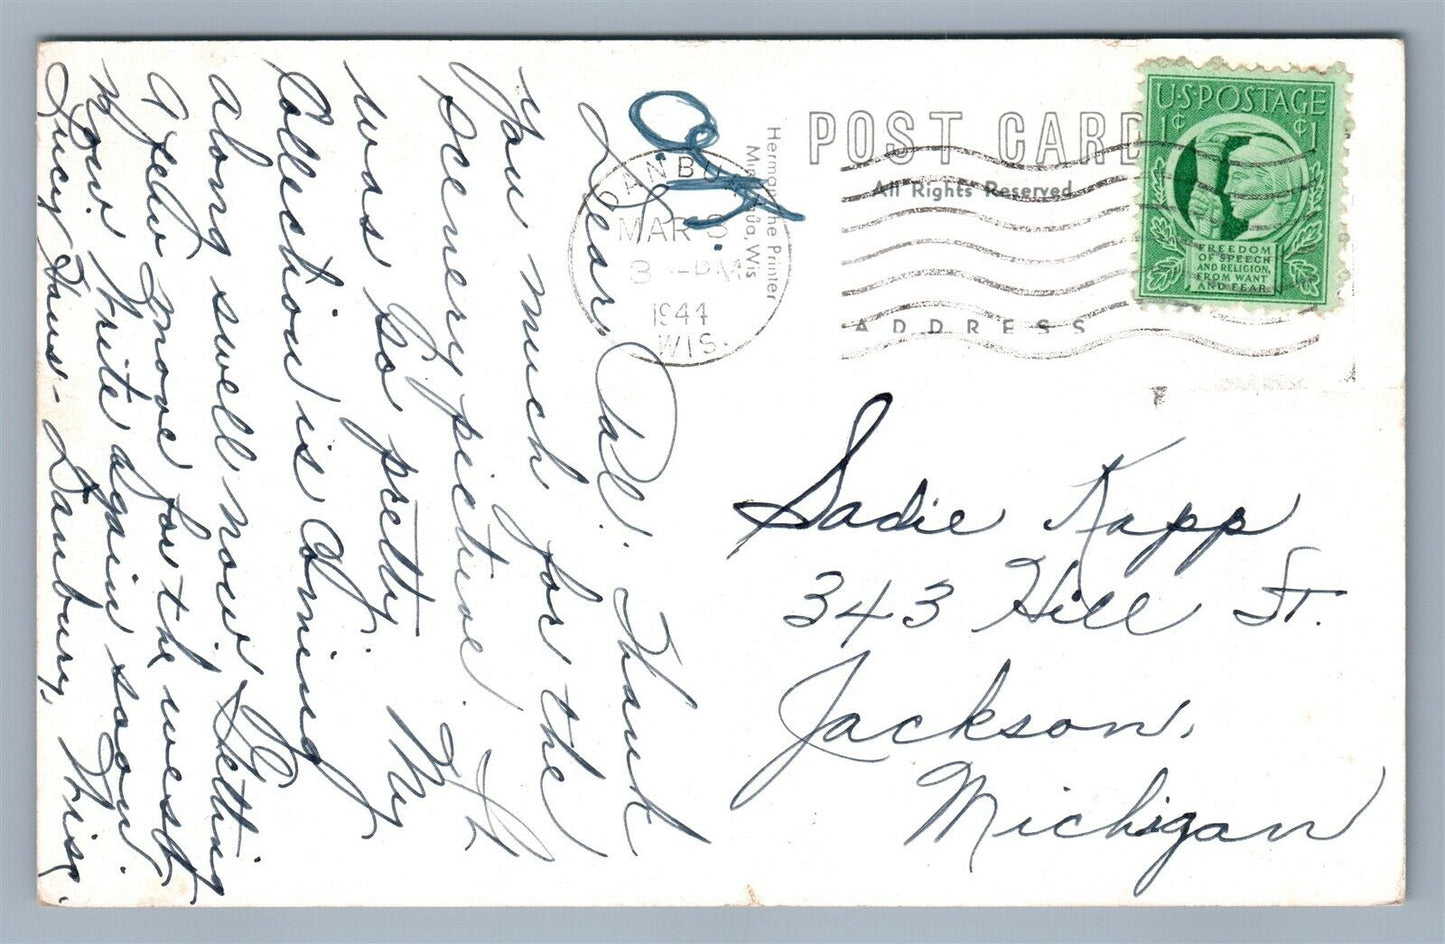 POST CARD
All Rights Reserved
ADDRESS
Herman, the Printer
Wis
DANBURY
MAR 3
3 PM
1944
WIS.
U.S. POSTAGE
1¢ ¢1
FREEDOM
OF SPEECH
AND RELIGION,
FROM WANT
AND FEAR
Dear Pal: Thank
you much for the
scenery picture. It
was so pretty. My
Collection is Coming
along swell now. Getting
a few more for the west.
Now Write again soon.
Lucy Haus - Danbury, Wisc.
Sadie Kapp
343 Hill St.
Jackson,
Michigan